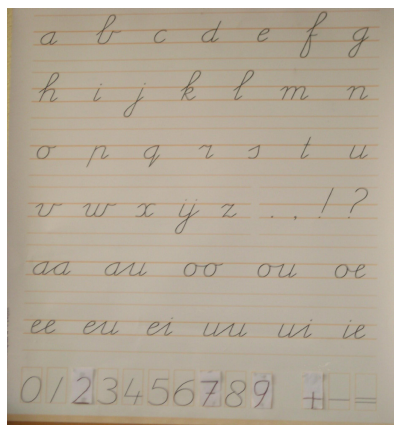 a b c d e f g
h i j k l m n
o p q r s t u
v w x ij z . , ! ?
aa au oo ou oe
ee eu ei uu ui ie
0 1 2 3 4 5 6 7 8 9 + - =